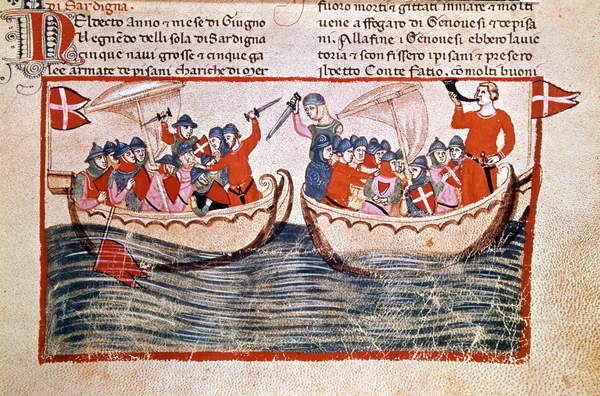 di Sardigna.
NEl decto Anno & mese di Giugno
Vegnẽdo dell isola di Sardigna
cinque navi grosse & cinque ga
lee armate de pisani chariche di mer
fuoro morti & gittati in mare & molti
vene a ffogare di Genovesi & de pisa
ni. Alla fine i Genovesi ebbero la vic
toria & sconfissero i pisani & presero
il decto Conte Fatio, cõ molti buoni